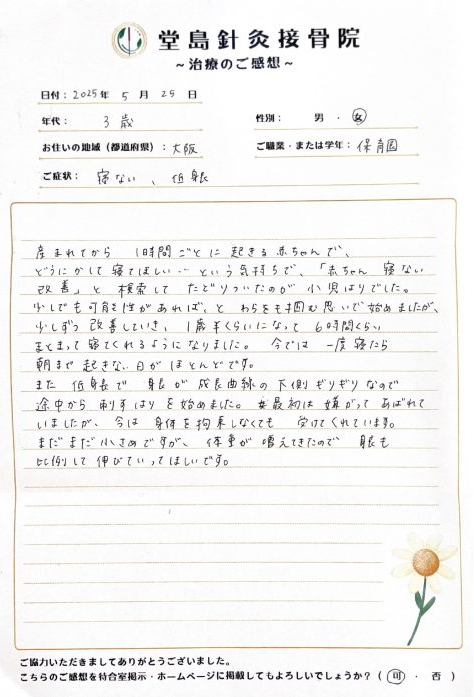 堂島針灸接骨院
~治療のご感想~
日付：2025年 5月 25日
年代： 3歳 性別： 男 ・ 女
お住いの地域（都道府県）： 大阪 ご職業・または学年： 保育園
ご症状： 寝ない、低身長
産まれてから 1時間ごとに起きる赤ちゃんで、
どうにかして寝てほしい… という気持ちで、「赤ちゃん 寝ない
改善」と 検索して たどりついたのが 小児はりでした。
少しでも可能性があれば、とわらをも掴む思いで始めましたが、
少しずつ 改善していき、1歳半くらいになって 6時間くらい
まとまって寝てくれるようになりました。 今では 一度寝たら
朝まで起きない日がほとんどです。
また 低身長で 身長が成長曲線の下側ギリギリなので
途中から刺すはりを始めました。 最初は嫌がってあばれて
いましたが、今は 身体を拘束しなくても 受けてくれています。
まだまだ小さめですが、体重が増えてきたので 身長も
比例して伸びていってほしいです。
ご協力いただきましてありがとうございました。
こちらのご感想を待合室掲示・ホームページに掲載してもよろしいでしょうか？（ 可 ・ 否 ）